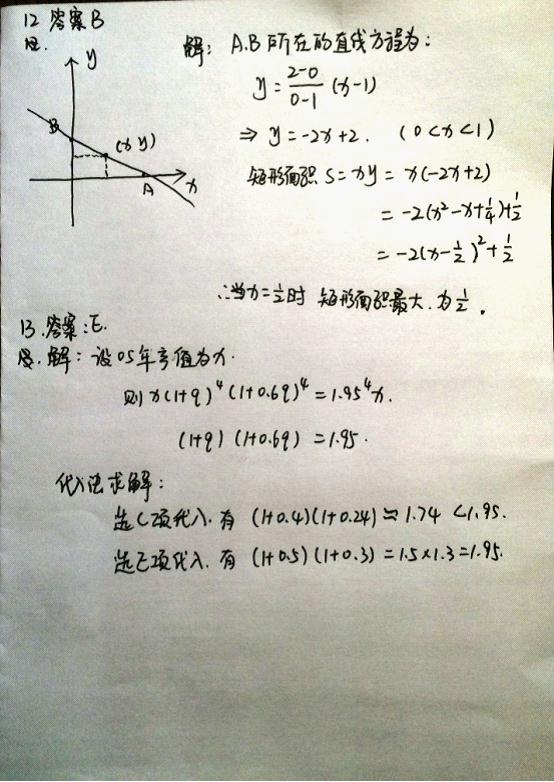 12 答案B
y
B
(x y)
A
x
解: A.B所在的直线方程为:
y = \frac{2-0}{0-1} (x-1)
⇒ y = -2x+2. (0<x<1)
矩形面积 S = xy = x(-2x+2)
= -2(x²-x+\frac{1}{4})+\frac{1}{2}
= -2(x-\frac{1}{2})²+\frac{1}{2}
∴当x=\frac{1}{2}时 矩形面积最大.为\frac{1}{2}.
13.答案:E.
解: 设05年产值为x.
则 x(1+q)⁴(1+0.6q)⁴ = 1.95⁴x.
(1+q) (1+0.6q) = 1.95.
代入法求解:
选C项代入.有 (1+0.4)(1+0.24) ≈ 1.74 <1.95.
选E项代入.有 (1+0.5)(1+0.3) = 1.5×1.3=1.95.